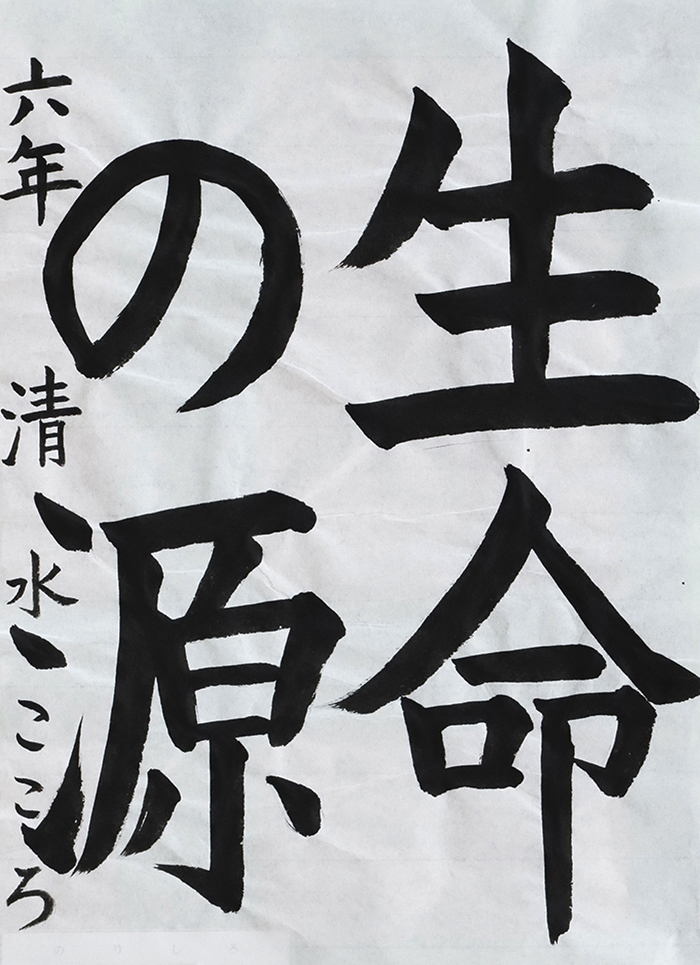 生命
の源
六年 清水こころ
のりしろ